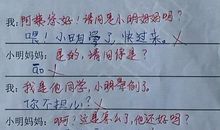 我:阿姨您好!请问是小明妈妈吗?
喂!小明同学了,快过来。
小明妈妈:是的,请问你是?
我:我是他同学,小明晕倒了。
你不担心?
小明妈妈:啊?这是怎么了,他还好吗?